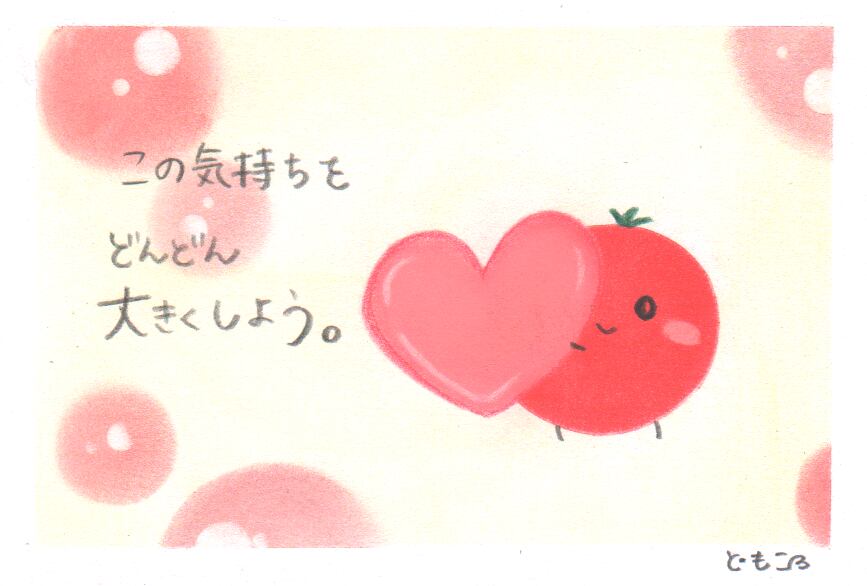 この気持ちを
どんどん
大きくしよう。
ともこ